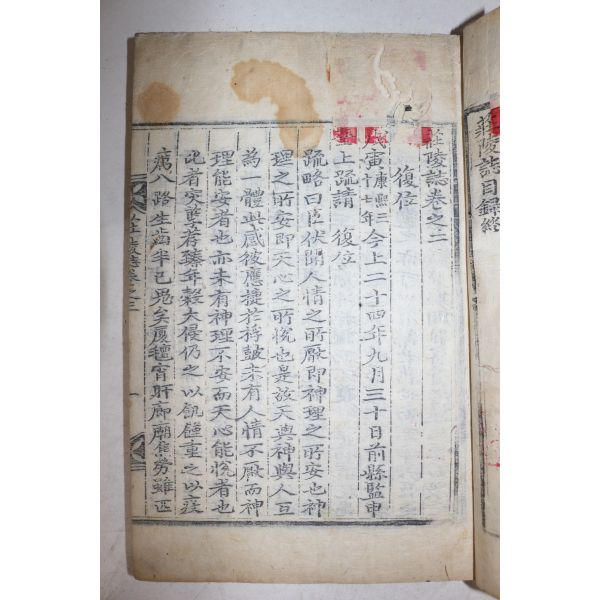 莊陵誌目錄終
莊陵誌卷之三
復位
戊寅康熙三十七年今上二十四年九月三十日前縣監申
上疏請 復位
疏略曰臣伏聞人情之所厭即神理之所安也神
理之所安即天心之所悅也是故天與神與人互
為一體與感彼應捷於桴鼓未有人情不厭而神
理能安者也亦未有神理不安而天心能悅者也
此者灾孽荐臻年穀大侵仍之以飢饉重之以疫
癘八路生齒半已鬼矣廈氊宵旰廊廟焦勞雖匹
莊陵誌卷之三
一